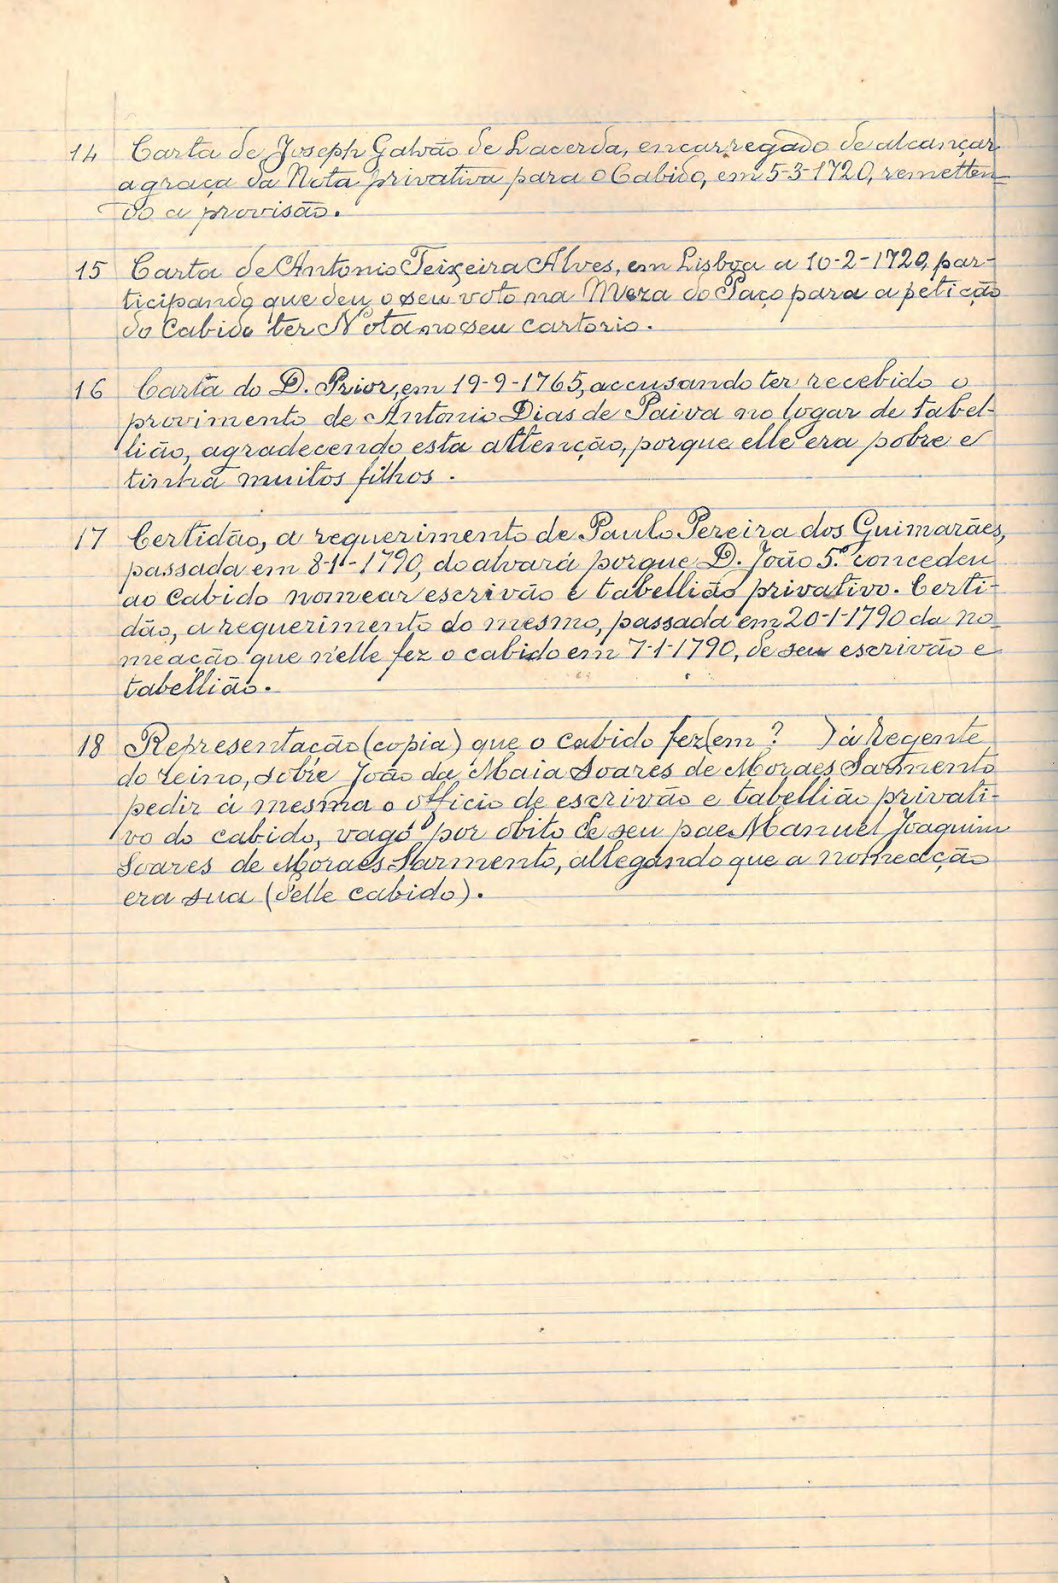 14 Carta de Joseph Galvão de Lacerda, encarregado de alcançar
a graça da Nota privativa para o Cabido, em 5-3-1720, remetten-
do a provisão.
15 Carta de Antonio Teixeira Alves, em Lisboa a 10-2-1720, par-
ticipando que deu o seu voto na Meza do Paço para a petição
do Cabido ter Nota no seu cartorio.
16 Carta do D. Prior, em 19-9-1765, accusando ter recebido o
provimento de Antonio Dias de Paiva no logar de tabel-
lião, agradecendo esta attenção, porque elle era pobre e
tinha muitos filhos.
17 Certidão, a requerimento de Paulo Pereira dos Guimarães,
passada em 8-1-1790, do alvará porque D. João 5.º concedeu
ao Cabido nomear escrivão e tabellião privativo. Certi-
dão, a requerimento do mesmo, passada em 20-1-1790 da no-
meação que n'elle fez o cabido em 7-1-1790, de seu escrivão e
tabellião.
18 Representação (copia) que o cabido fez (em ? ) á Regente
do reino, sobre João da Maia Soares de Moraes Sarmento
pedir á mesma o officio de escrivão e tabellião privati-
vo do cabido, vago por obito de seu pae Manuel Joaquim
Soares de Moraes Sarmento, allegando que a nomeação
era sua (delle cabido).